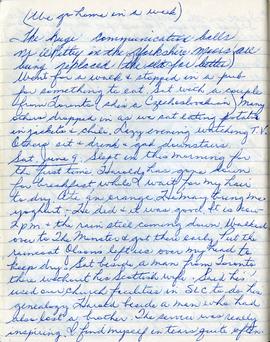 (We go home in a week)
The huge communication balls
by Whitby in the Yorkshire Moors are
being replaced (the alt for better)
Went for a walk & stopped in a pub
for something to eat. Sat with a couple
from Toronto (she's a Czechoslovakian) Many
others dropped in as we sat eating potato
in jackets & chili. Lazy evening watching T.V.
Others sit & drink & gab downstairs.
Sat. June 9. Slept in this morning for
the first time. Harold has gone down
for breakfast while I wait for my hair
to dry. Ate an orange & may bring me
yoghurt - He did & it was good. It is now
2 p.m & the rain still coming down. Walked
over to the Minster & got there early. Put the
raincoat over my head to
keep dry. Sat beside a man from Toronto
there without his Scottish wife. Said he's
used our Church facilities in SLC to do his
genealogy. Harold beside a man who had
also lost a brother. The service was really
inspiring. I find myself in tears quite often.